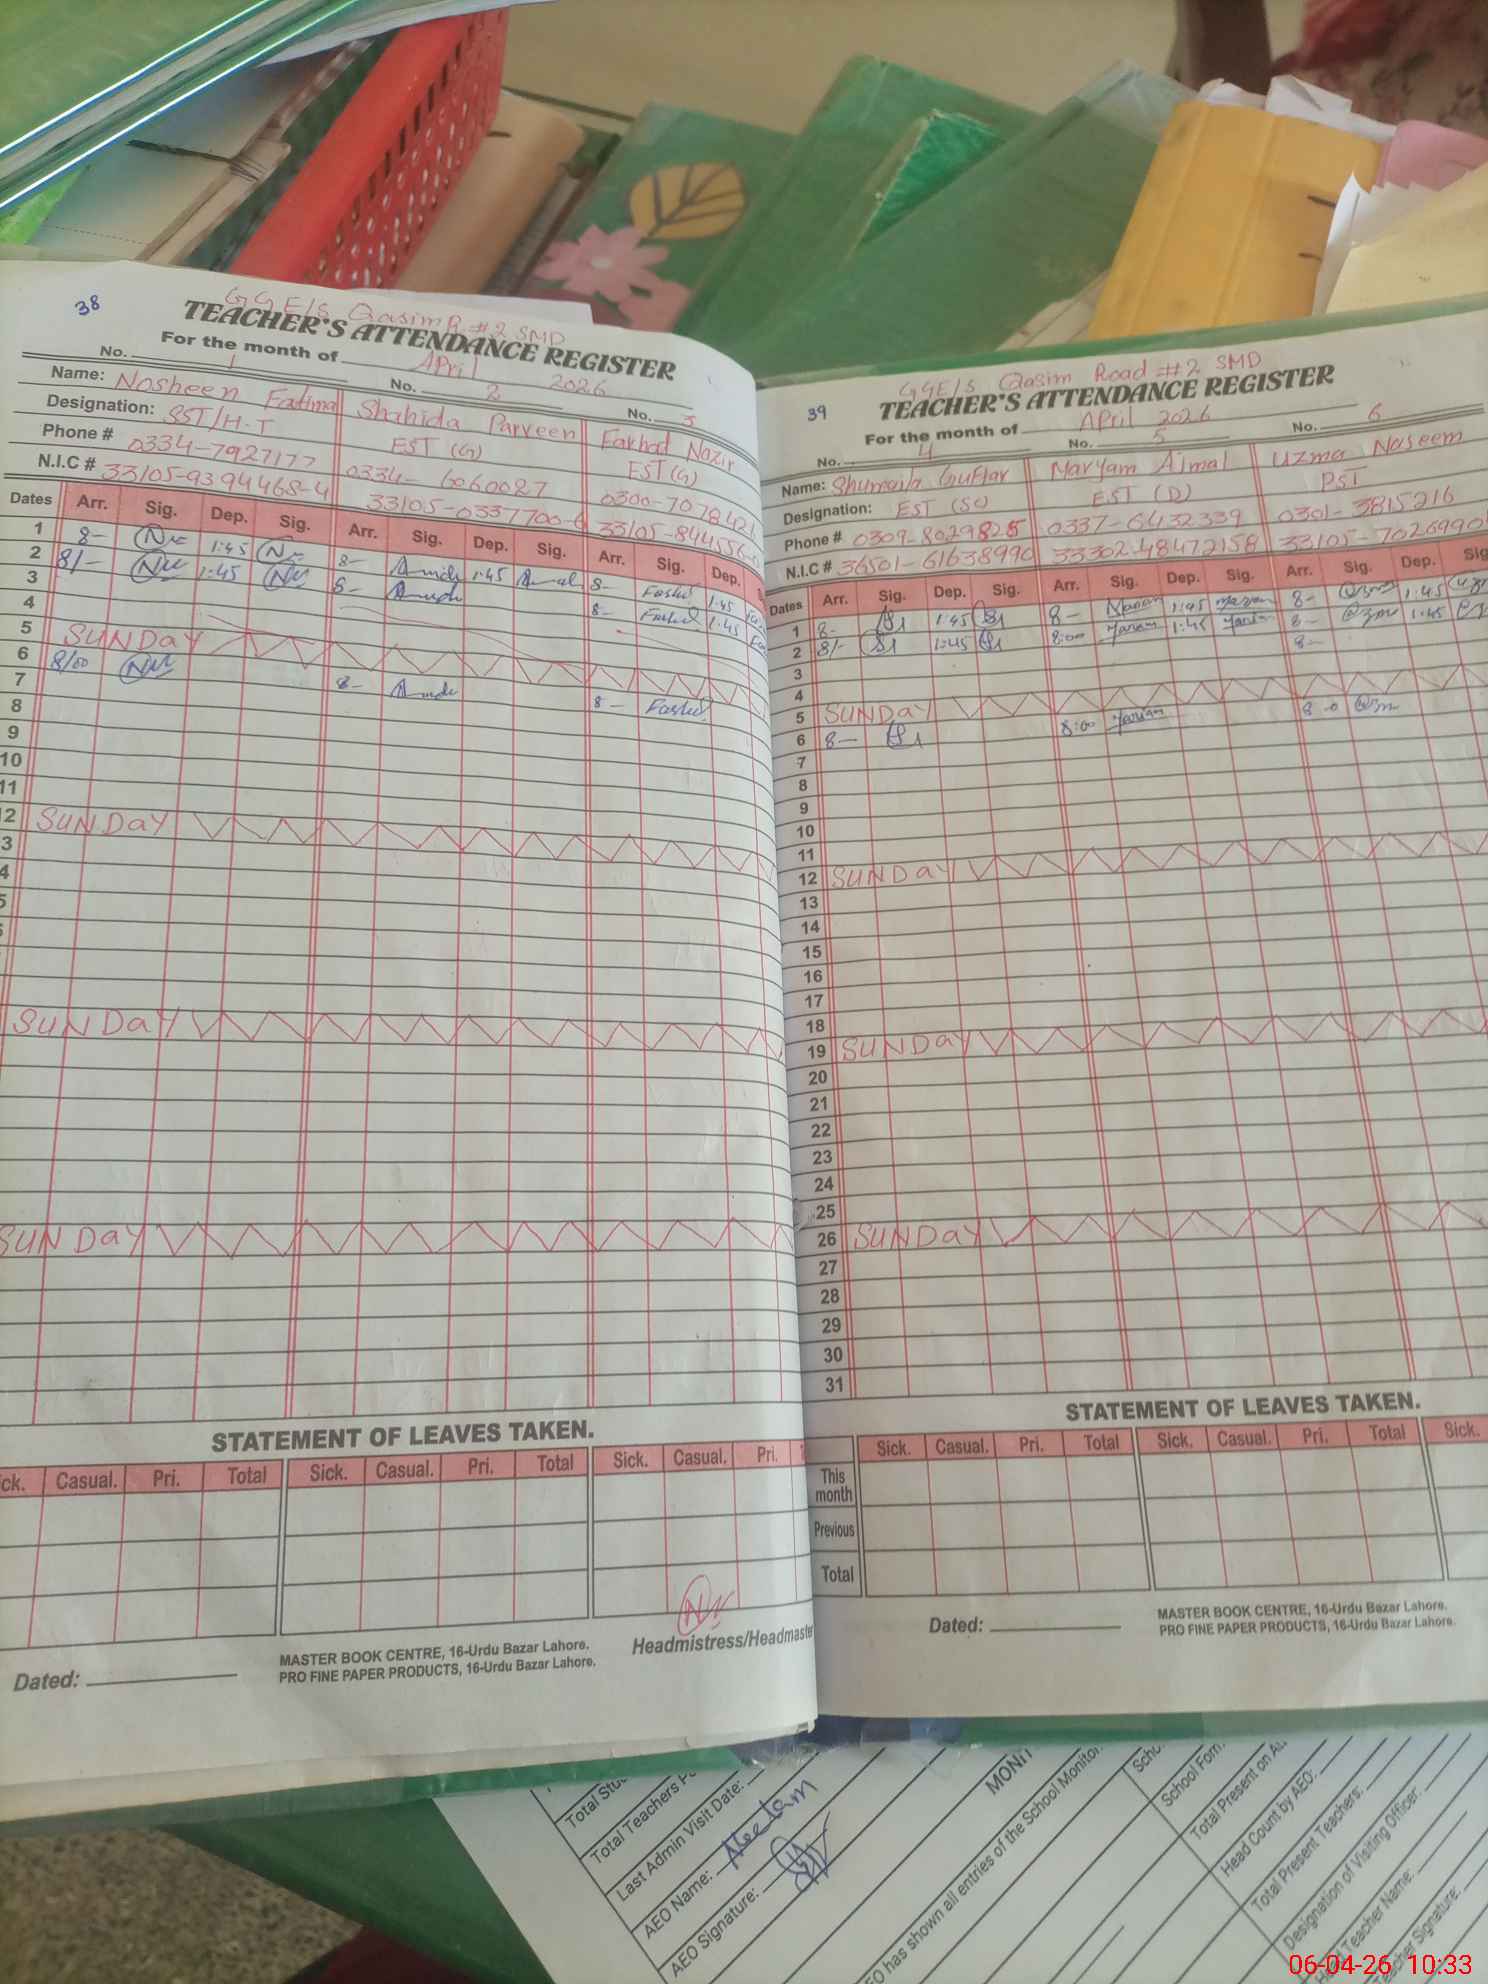 38
GGE/S Qasim R #2 SMD
TEACHER'S ATTENDANCE REGISTER
For the month of April 2026
No. 1 No. 2 No. 3
Name: Nosheen Fatima Shahida Parveen Farhat Nazir
Designation: SST/H.T EST (G) EST (G)
Phone # 0334-7927177 0334-6060027 0300-7078421
N.I.C # 33105-9394468-4 33105-0337700-6 33105-844556
Dates Arr. Sig. Dep. Sig. Arr. Sig. Dep. Sig. Arr. Sig. Dep.
1 8- 1:45 8- 1:45 8- 1:45
2 8/- 1:45 8- 8- 1:45
3
4
5 SUNDAY
6 8/00 8- 8-
7
8
9
10
11
12 SUNDAY
SUNDAY
SUNDAY
STATEMENT OF LEAVES TAKEN.
Casual. Pri. Total Sick. Casual. Pri. Total Sick. Casual. Pri.
Headmistress/Headmaster
MASTER BOOK CENTRE, 16-Urdu Bazar Lahore.
Dated: PRO FINE PAPER PRODUCTS, 16-Urdu Bazar Lahore.
39
GGE/S Qasim Road #2 SMD
TEACHER'S ATTENDANCE REGISTER
For the month of April 2026
No. 4 No. 5 No. 6
Name: Shumaila Guftar Maryam Ajmal Uzma Naseem
Designation: EST (SC) EST (D) PST
Phone # 0309-8029825 0337-6432339 0301-3815216
N.I.C # 36501-61638990 33302-48472158 33105-7026990
Dates Arr. Sig. Dep. Sig. Arr. Sig. Dep. Sig. Arr. Sig. Dep. Sig
1 8- 1:45 8- Maryam 1:45 Maryam 8- 1:45
2 8/- 1:45 8:00 Maryam 1:45 Maryam 8- 1:45
3 8-
4
5 SUNDAY
6 8- 8:00 Maryam 8-0
7
8
9
10
11
12 SUNDAY
13
14
15
16
17
18
19 SUNDAY
20
21
22
23
24
25
26 SUNDAY
27
28
29
30
31
STATEMENT OF LEAVES TAKEN.
Sick. Casual. Pri. Total Sick. Casual. Pri. Total Sick.
This month
Previous
Total
MASTER BOOK CENTRE, 16-Urdu Bazar Lahore.
Dated: PRO FINE PAPER PRODUCTS, 16-Urdu Bazar Lahore.
Total Stu
Total Teachers P
Last Admin Visit Date:
AEO Name:
AEO Signature:
MONIT
EO has shown all entries of the School Monitor
School Form
Total Present on
Head Count by AEO:
Total Present Teachers:
Designation of Visiting Officer:
Teacher Name:
Teacher Signature:
06-04-26 10:33